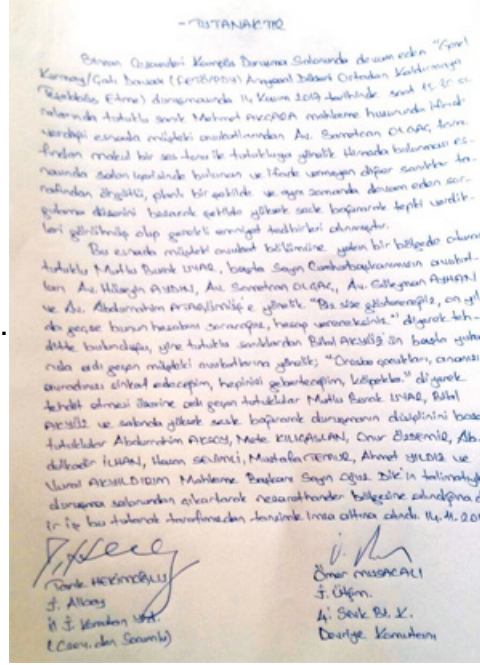 - TUTANAKTIR
Sincan Cezaevi Kampüs Duruşma Salonunda devam eden "Genel
Kurmay/Çatı Davası (FETÖ/PDY) Anayasal Düzeni Ortadan Kaldırmaya
Teşebbüs Etme) duruşmasında 14 Kasım 2017 tarihinde saat
sularında tutuklu sanık Mehmet AKÇARA mahkeme huzurunda ifade
verdiği esnada müşteki avukatlarından Av. Sametcan OLGAÇ, tara-
fından makul bir ses tonu ile tutukluya yönelik hitapda bulunması es-
nasında salon içerisinde bulunan ve ifade vermeyen diğer sanıklar ta-
rafından örgütlü, planlı bir şekilde ve aynı zamanda devam eden sor-
gulama düzenini bozacak şekilde yüksek sesle bağırarak tepki verdik-
leri görülmüş olup gerekli emniyet tedbirleri alınmıştır.
Bu esnada müşteki avukat bölümüne yakın bir bölgede oturan
tutuklu Mutlu Burak UNAR, başta Sayın Cumhurbaşkanımızın avukat-
ları Av. Hüseyin AYDIN, Av. Sametcan OLGAÇ, Av. Süleyman AYHAN
ve Av. Abdurrahim 'e yönelik "Biz size göstereceğiz, on yıl
da geçse bunun hesabını soracağız, hesap vereceksiniz." diyerek teh-
ditte bulunduğu, yine tutuklu sanıklardan Bilal AKYÜZ ün başta yuka-
rıda adı geçen müşteki avukatlarına yönelik; "Orosbu çocukları, ananızı
avradınızı sinkaf edeceğim, hepinizi geberteceğim, köpekler." diyerek
tehdit etmesi üzerine adı geçen tutuklular Mutlu Burak UNAR, Bilal
AKYÜZ ve salonda yüksek sesle bağırarak duruşmanın düzenini bozan
tutuklular Abdurrahim AKSOY, Mete KILIÇASLAN, Onur ÖZDEMİR, Ab-
dulkadir İLHAN, Hasan SEVİMLİ, Mustafa TEMUR, Ahmet YILDIZ ve
Vural AKYILDIRIM Mahkeme Başkanı Sayın Oğuz Dik'in talimatıyla
duruşma salonundan çıkartılarak nezarethaneler bölgesine alındığına da-
ir iş bu tutanak tarafımızdan tanzimle imza altına alındı. 14.11.201
Tarık HEKİMOĞLU
J. Albay
İl J. Komutan Yrd.
(Cezaevinden Sorumlu)
Ömer MUSACALI
J. Ütğm.
4. Sevk Bl. K.
Devriye Komutanı